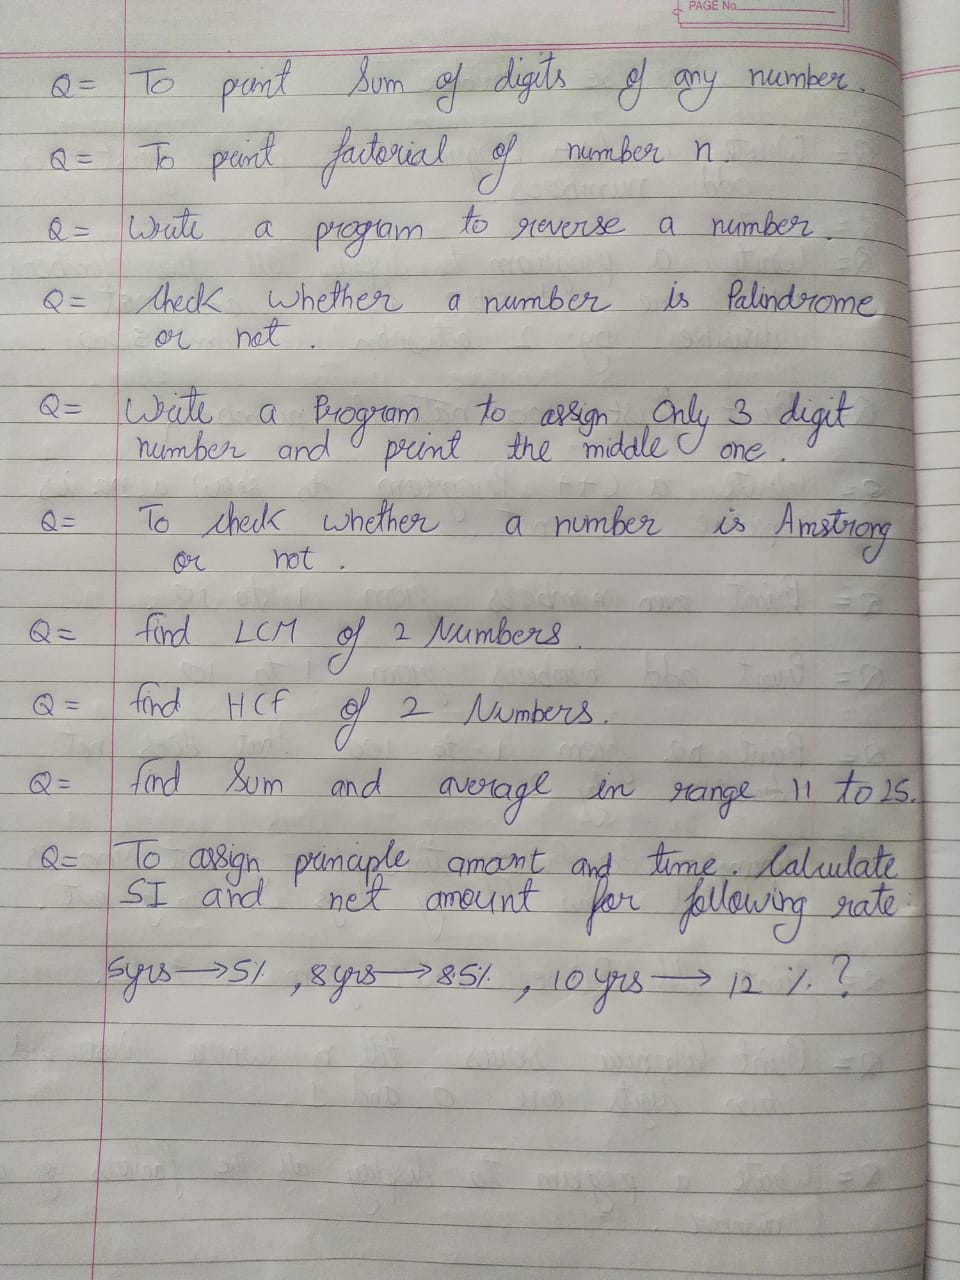 PAGE No.
Q= To print Sum of digits of any number.
Q= To print factorial of number n.
Q= Write a program to reverse a number.
Q= Check whether a number is Palindrome
or not.
Q= Write a Program to assign Only 3 digit
number and print the middle one.
Q= To check whether a number is Amstrong
or not.
Q= find LCM of 2 Numbers.
Q= find HCF of 2 Numbers.
Q= find Sum and average in range 11 to 25.
Q= To assign principle amant and time. Calculate
SI and net amount for following rate
5yrs → 5%, 8yrs → 8.5%, 10 yrs → 12 %?